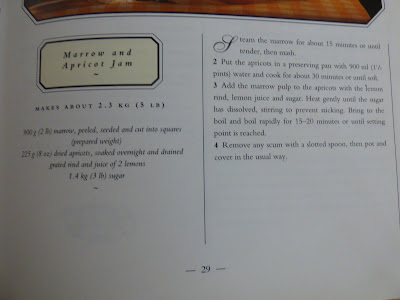 Marrow and
Apricot Jam
~
MAKES ABOUT 2.3 KG (5 LB)
900 g (2 lb) marrow, peeled, seeded and cut into squares
(prepared weight)
225 g (8 oz) dried apricots, soaked overnight and drained
grated rind and juice of 2 lemons
1.4 kg (3 lb) sugar
~
Steam the marrow for about 15 minutes or until
tender, then mash.
2 Put the apricots in a preserving pan with 900 ml (1½
pints) water and cook for about 30 minutes or until soft.
3 Add the marrow pulp to the apricots with the lemon
rind, lemon juice and sugar. Heat gently until the sugar
has dissolved, stirring to prevent sticking. Bring to the
boil and boil rapidly for 15–20 minutes or until setting
point is reached.
4 Remove any scum with a slotted spoon, then pot and
cover in the usual way.
— 29 —